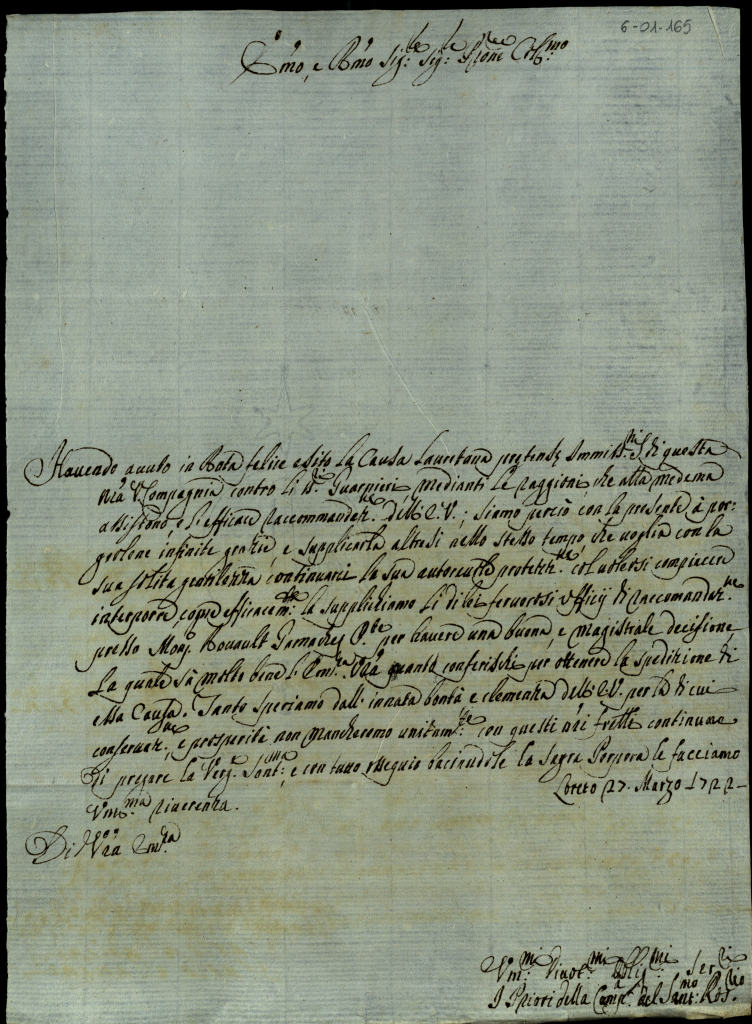 6-01-165
Emo, e Rmo Sig:re Sig:re Pñe Col:mo
Havendo avuto in Rota felice esito la Causa Lauretana pretensę Immiss:nis di questa
nrã V. Compagnia contro li SS:ri Guarnieri mediante le raggioni, che alla medema
assistono, e l'efficace raccommandaz:ne dell'E.V.; siamo perciò con la presente à por-
gerlene infinite grazie, e supplicarla altresì nello stesso tempo, che voglia con la
sua solita gentilezza continuarci la sua autorevole protett:ne col volersi compiacere
interporre, come efficacem:te la supplichiamo li di lei fervorosi Ufficij di raccomandaz:ne
presso Mons: Rouault Gamaches P:te per havere una buona, e magistrale decisione,
La quale sà molto bene l'Em:za Vrã quanto conferischi per ottenere la spedizione di
essa Causa. Tanto speriamo dall'innata bontà e clemenza dell'E.V. per la di cui
conservaz:ne, e prosperità non mancheremo unitam:te con questi nri frlli continuare
di pregare la Verg: Sant:ma, e con tutto ossequio baciandole la Sagra Porpora le facciamo
Um:ma riverenza. Loreto 27. Marzo 1722
Di Vrã Em:za
Um:mi Divot:mi Oblig:mi Ser:ri
I Priori della Comp:a del Sant:mo Ros:rio